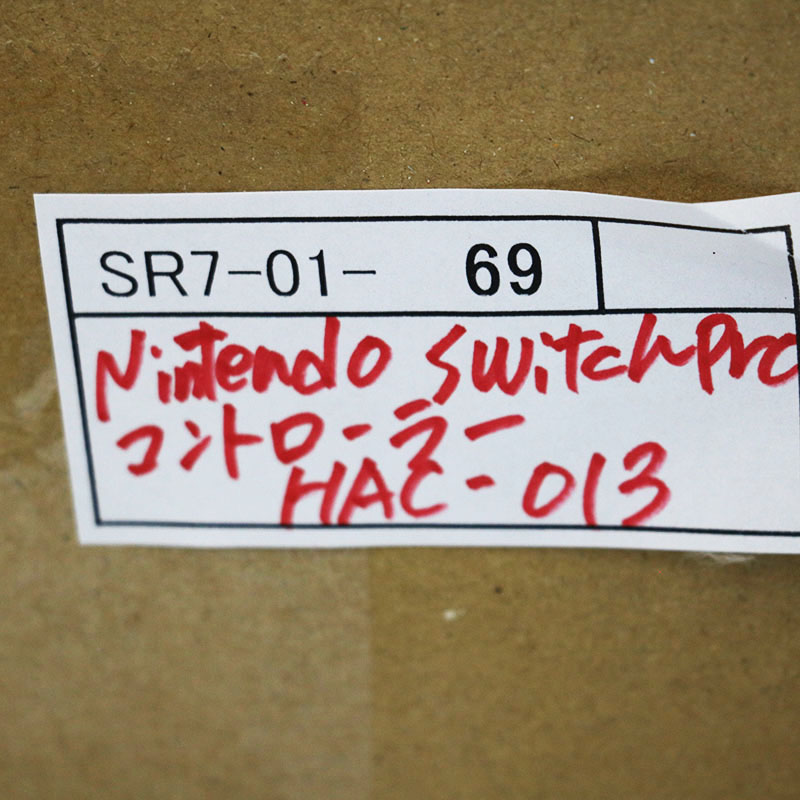 SR7-01- 69
Nintendo Switch Pro
コントローラー
HAC-013